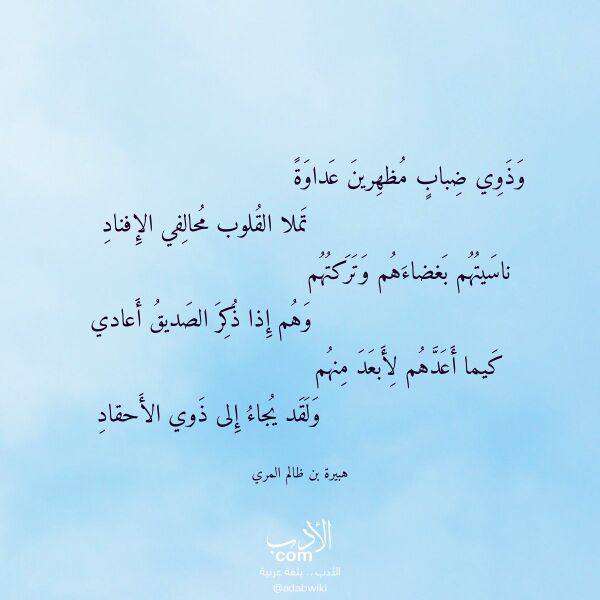 وَذَوِي ضِبابٍ مُظهِرينَ عَداوَةً
تَملا القُلوب مُحالِفي الإِفنادِ
ناسَيتُهُم بَغضاءَهُم وَتَرَكتُهُم
وَهُم إِذا ذُكِرَ الصَديقُ أَعادي
كَيما أَعَدَّهُم لِأَبعَدَ مِنهُم
وَلَقَد يُجاءُ إِلى ذَوي الأَحقادِ
هبيرة بن ظالم المري
الأدب
com
الأدب .. بلغة عربية
@adabwiki